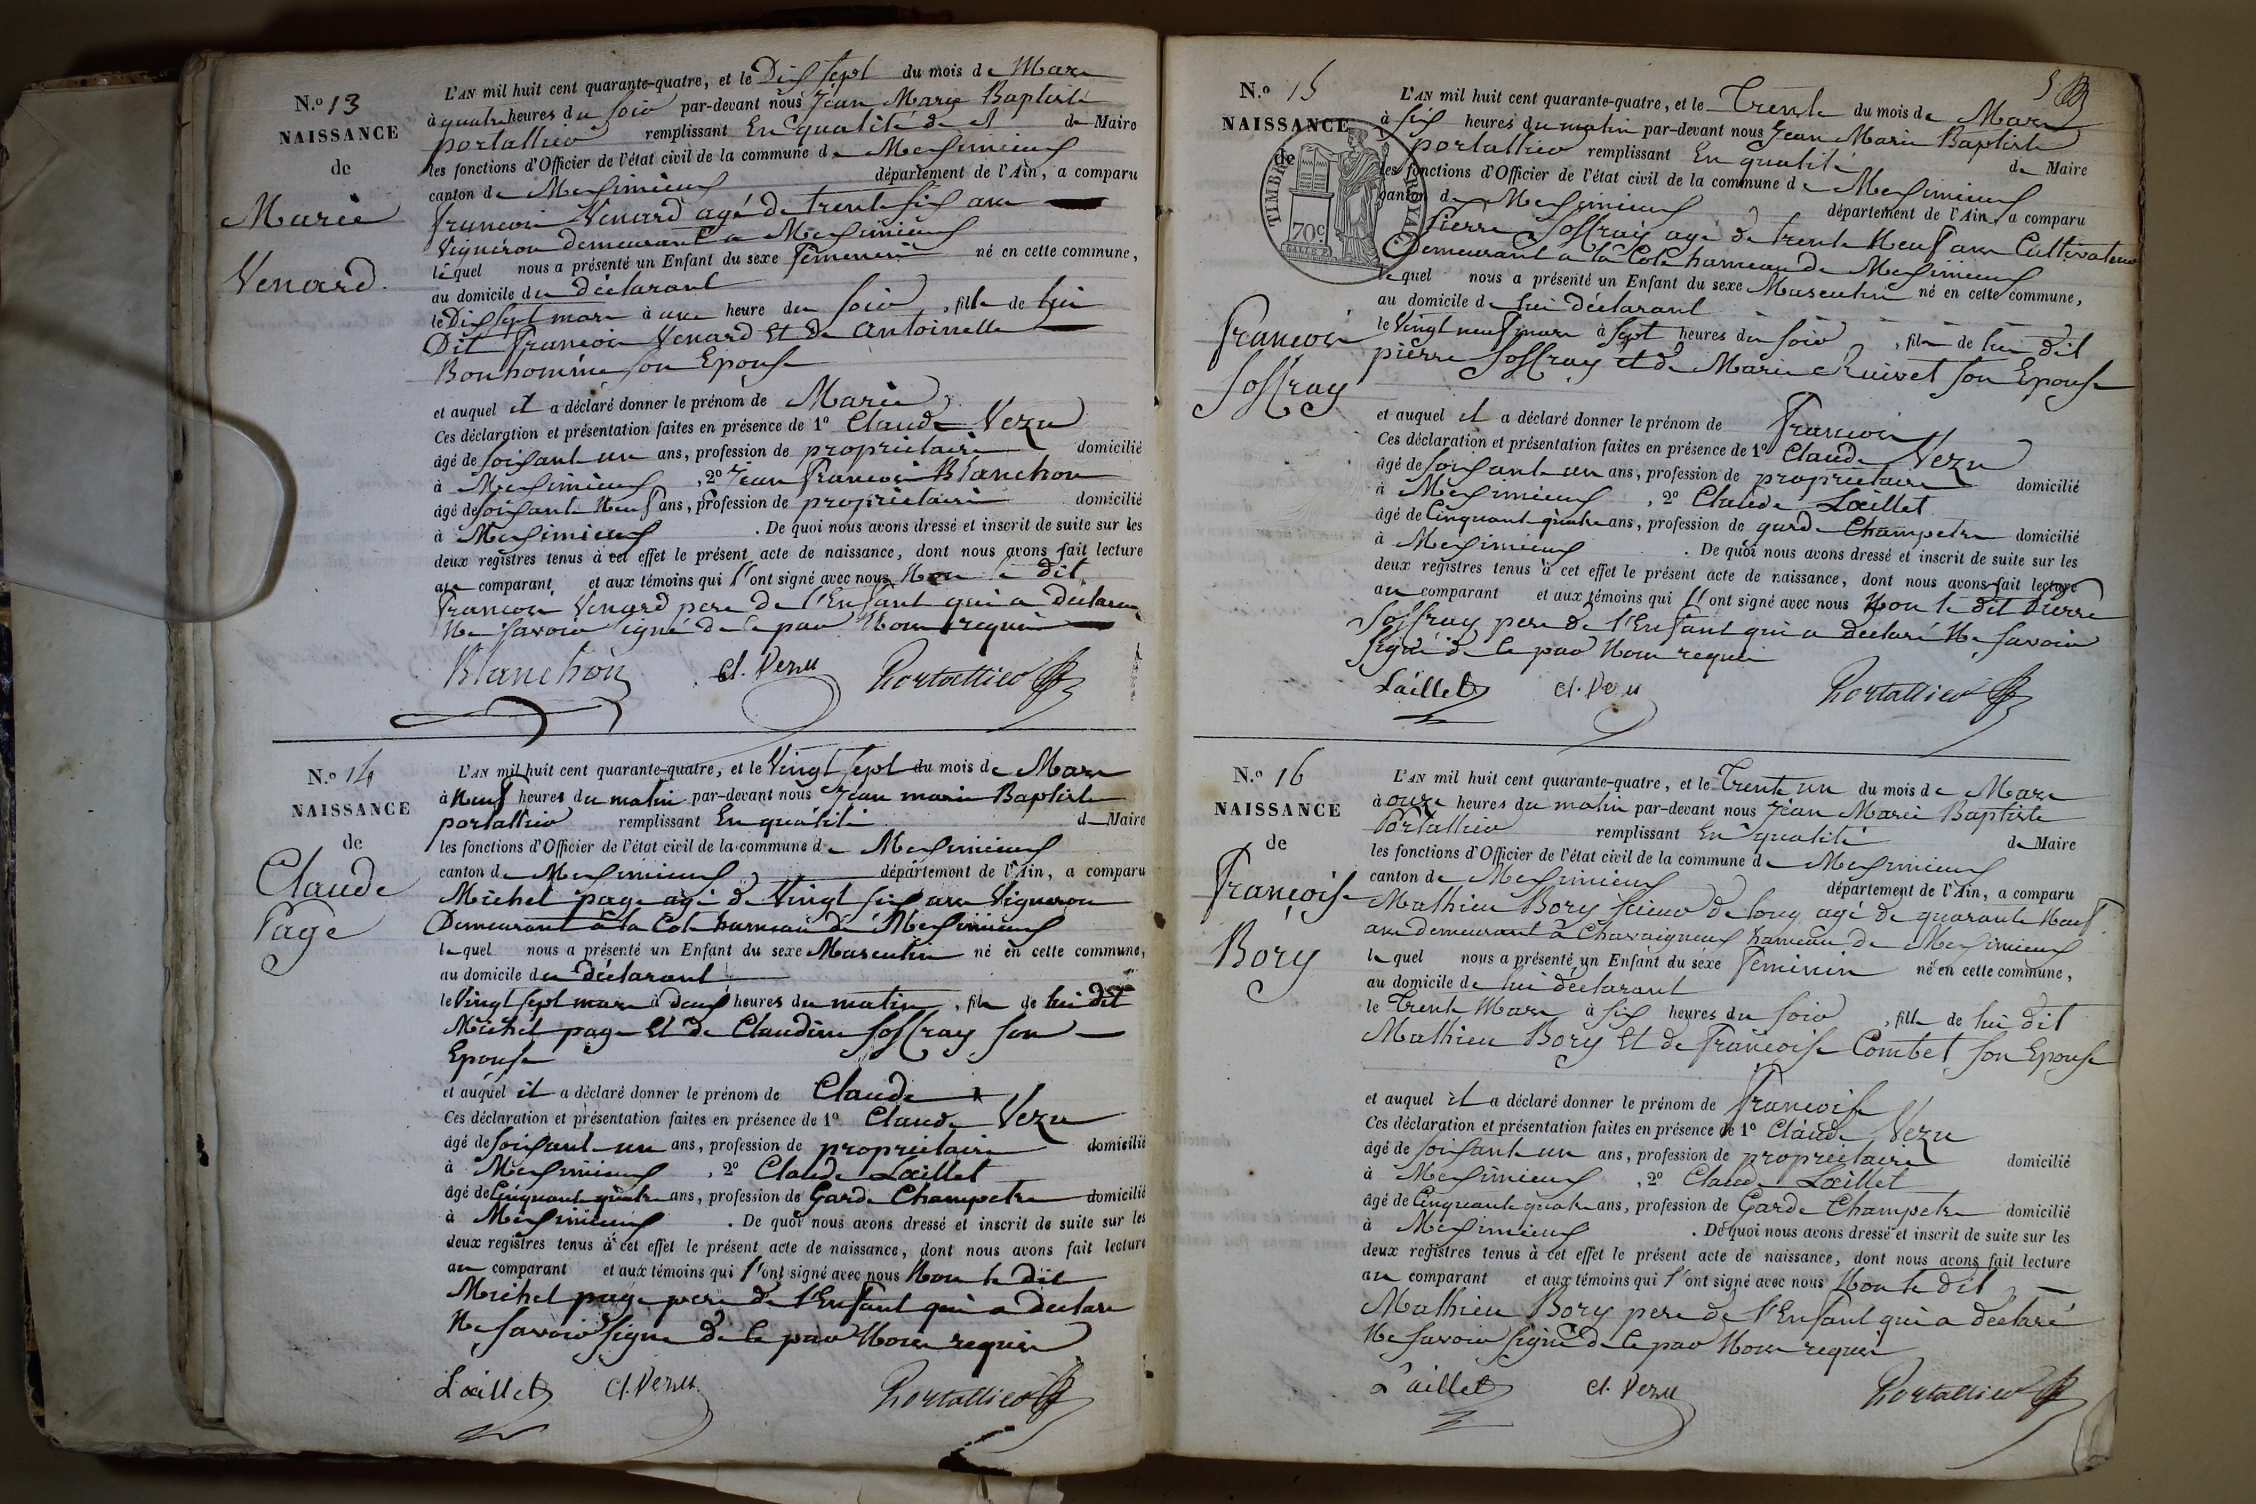 N.º 13
NAISSANCE
de
Marie
Venard
L'AN mil huit cent quarante-quatre, et le Dix sept du mois de Mars
à quatre heures du soir par-devant nous Jean Marie Baptiste
portallier remplissant En qualité de Maire
les fonctions d'Officier de l'état civil de la commune de Meximieux
canton de Meximieux département de l'Ain, a comparu
francois Venard agé de trente six ans
Vigneron demeurant a Meximieux
lequel nous a présenté un Enfant du sexe femenin né en cette commune,
au domicile du déclarant
le Dix sept mars à une heure du soir, fille de lui
Dit francois Venard Et de antoinette
Bonhomme son Epouse
et auquel il a déclaré donner le prénom de Marie
Ces déclaration et présentation faites en présence de 1º Claude Vezu
âgé de soixante un ans, profession de propriétaire domicilié
à Meximieux, 2º Jean francois Blanchon
âgé de soixante Neuf ans, profession de propriétaire domicilié
à Meximieux. De quoi nous avons dressé et inscrit de suite sur les
deux registres tenus à cet effet le présent acte de naissance, dont nous avons fait lecture
au comparant et aux témoins qui l'ont signé avec nous Non le dit
francois Venard pere de l'Enfant qui a declaré
Ne savoir signé de ce par Nous requis
Blanchon cl. Vezu Portallier
N.º 14
NAISSANCE
de
Claude
Page
L'AN mil huit cent quarante-quatre, et le Vingt sept du mois de Mars
à Neuf heures du matin par-devant nous Jean marie Baptiste
portallier remplissant En qualité de Maire
les fonctions d'Officier de l'état civil de la commune de Meximieux
canton de Meximieux département de l'Ain, a comparu
Michel page agé de Vingt six ans Vigneron
Demeurant à la Cote hameau de Meximieux
lequel nous a présenté un Enfant du sexe Masculin né en cette commune,
au domicile du déclarant
le Vingt sept mars à deux heures du matin, fils de lui dit
Michel page Et de Claudine Soffray son
Epouse
et auquel il a déclaré donner le prénom de Claude
Ces déclaration et présentation faites en présence de 1º Claude Vezu
âgé de soixante un ans, profession de propriétaire domicilié
à Meximieux, 2º Claude Laillet
âgé de Cinquante quatre ans, profession de Garde Champetre domicilié
à Meximieux. De quoi nous avons dressé et inscrit de suite sur les
deux registres tenus à cet effet le présent acte de naissance, dont nous avons fait lecture
au comparant et aux témoins qui l'ont signé avec nous Non le dit
Michel page pere de l'Enfant qui a declare
Ne savoir signe de ce par Nous requis
Laillet cl. Vezu Portallier
5
N.º 15
NAISSANCE
de
TIMBRE ROYAL
70c
francois
Soffray
L'AN mil huit cent quarante-quatre, et le Trente du mois de Mars
à six heures du matin par-devant nous Jean Marie Baptiste
portallier remplissant En qualité de Maire
les fonctions d'Officier de l'état civil de la commune de Meximieux
canton de Meximieux département de l'Ain, a comparu
Pierre Soffray agé de trente Neuf ans Cultivateur
Demeurant a la Cote hameau de Meximieux
lequel nous a présenté un Enfant du sexe Masculin né en cette commune,
au domicile de lui déclarant
le Vingt neuf mars à sept heures du soir, fils de lui dit
pierre Soffray et de Marie Ruivet son Epouse
et auquel il a déclaré donner le prénom de francois
Ces déclaration et présentation faites en présence de 1º Claude Vezu
âgé de soixante un ans, profession de propriétaire domicilié
à Meximieux, 2º Claude Laillet
âgé de Cinquante quatre ans, profession de garde Champetre domicilié
à Meximieux. De quoi nous avons dressé et inscrit de suite sur les
deux registres tenus à cet effet le présent acte de naissance, dont nous avons fait lecture
au comparant et aux témoins qui l'ont signé avec nous Non le dit Pierre
Soffray pere de l'Enfant qui a declaré Ne savoir
signé de ce par Nous requis
Laillet cl. Vezu Portallier
N.º 16
NAISSANCE
de
françoise
Bory
L'AN mil huit cent quarante-quatre, et le Trente un du mois de Mars
à onze heures du matin par-devant nous Jean Marie Baptiste
Portallier remplissant En qualité de Maire
les fonctions d'Officier de l'état civil de la commune de Meximieux
canton de Meximieux département de l'Ain, a comparu
Mathieu Bory scieur de long agé de quarante Neuf
ans demeurant a Chavaigneux hameau de Meximieux
lequel nous a présenté un Enfant du sexe feminin né en cette commune,
au domicile de lui déclarant
le Trente Mars à six heures du soir, fille de lui dit
Mathieu Bory Et de francoise Combet son Epouse
et auquel il a déclaré donner le prénom de francoise
Ces déclaration et présentation faites en présence de 1º Claude Vezu
âgé de soixante un ans, profession de propriétaire domicilié
à Meximieux, 2º Claude Laillet
âgé de Cinquante quatre ans, profession de Garde Champetre domicilié
à Meximieux. De quoi nous avons dressé et inscrit de suite sur les
deux registres tenus à cet effet le présent acte de naissance, dont nous avons fait lecture
au comparant et aux témoins qui l'ont signé avec nous Non le dit
Mathieu Bory pere de l'Enfant qui a déclaré
Ne savoir signé de ce par Nous requis
Laillet cl. Vezu Portallier